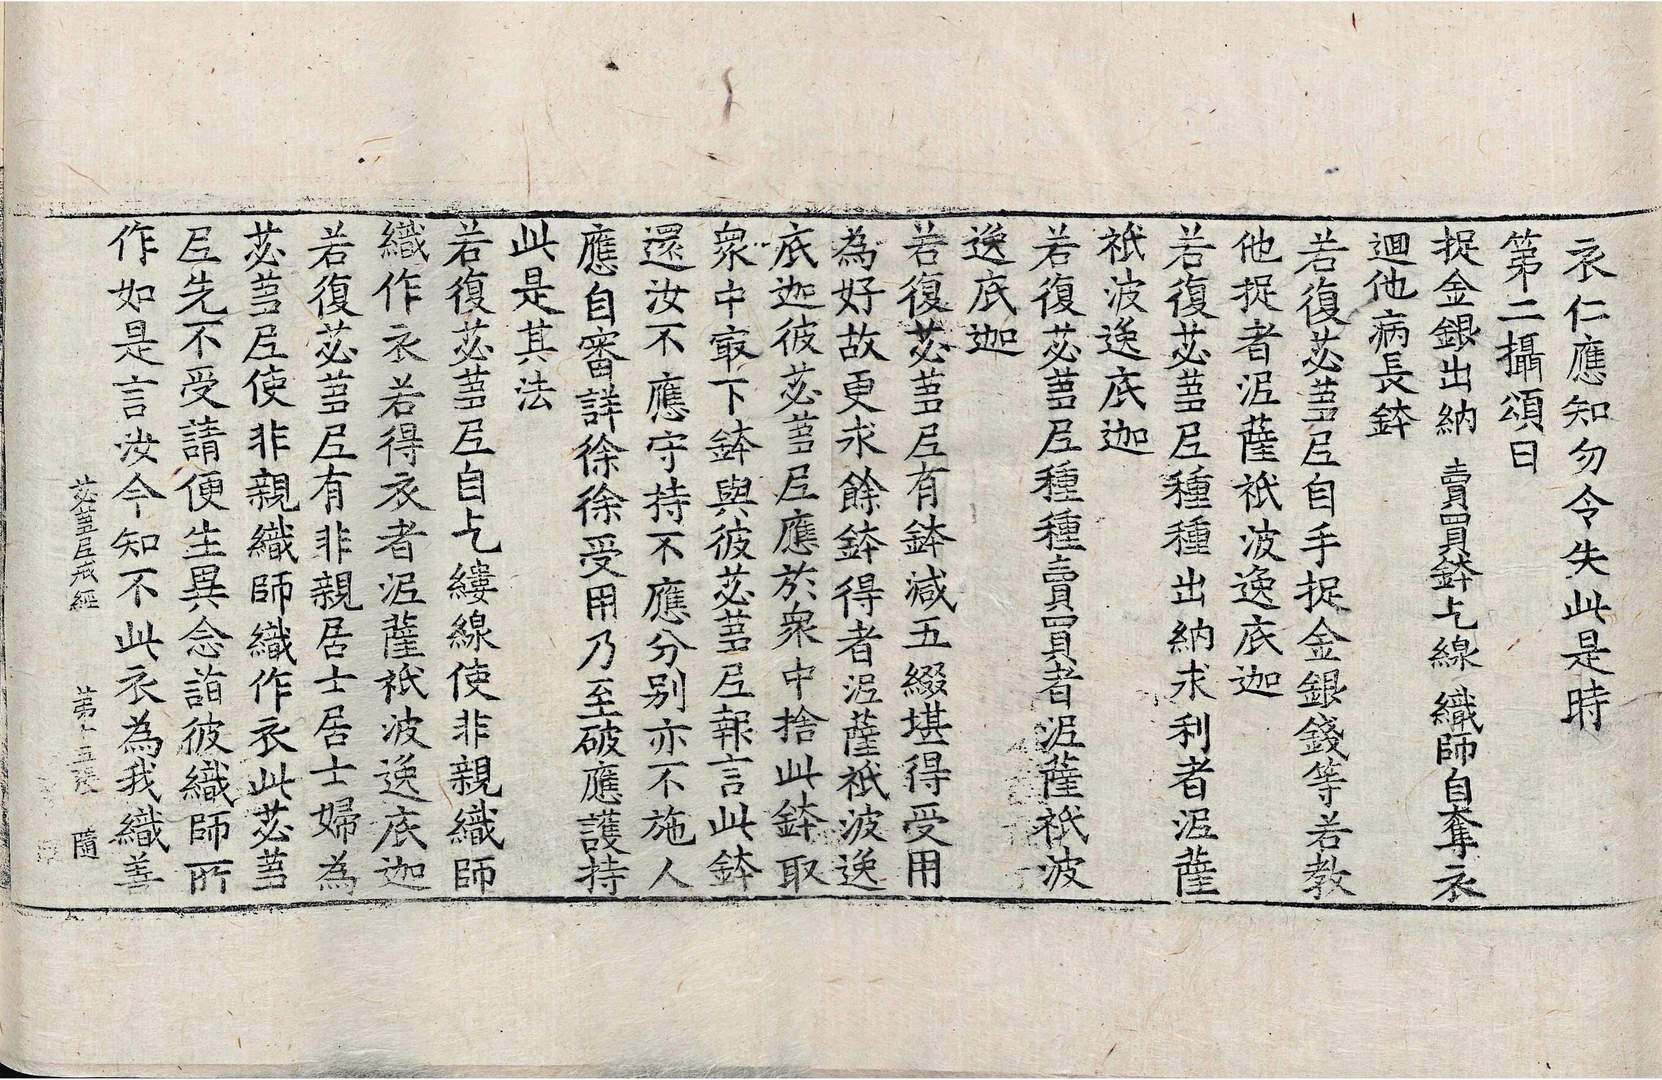 衣仁應知勿令失此是時
第二攝頌曰
捉金銀出納　賣買鉢乞線　織師自奪衣
迴他病長鉢
若復苾蒭尼自手捉金銀錢等若教
他捉者泥薩祇波逸底迦
若復苾蒭尼種種出納求利者泥薩
祇波逸底迦
若復苾蒭尼種種賣買者泥薩祇波
逸底迦
若復苾蒭尼有鉢減五綴堪得受用
為好故更求餘鉢得者泥薩祇波逸
底迦彼苾蒭尼應於衆中捨此鉢取
衆中寂下鉢與彼苾蒭尼報言此鉢
還汝不應守持不應分別亦不施人
應自審詳徐徐受用乃至破應護持
此是其法
若復苾蒭尼自乞縷線使非親織師
織作衣若得衣者泥薩祇波逸底迦
若復苾蒭尼有非親居士居士婦為
苾蒭尼使非親織師織作衣此苾蒭
尼先不受請便生異念詣彼織師所
作如是言汝今知不此衣為我織善
苾蒭尼戒經　第十五張　隨